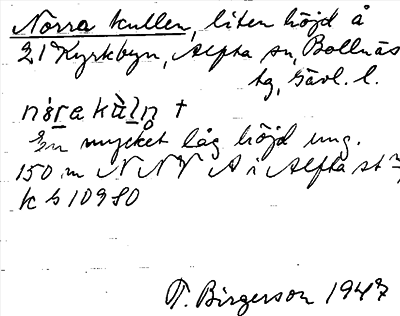 Norra kullen, liten höjd å
21 Kyrkbyn, Alfta sn, Bollnäs
tg, Gävl. l.
En mycket låg höjd ung.
150 m NNV A i Alfta st
k b 10980
T. Birgerson 1947